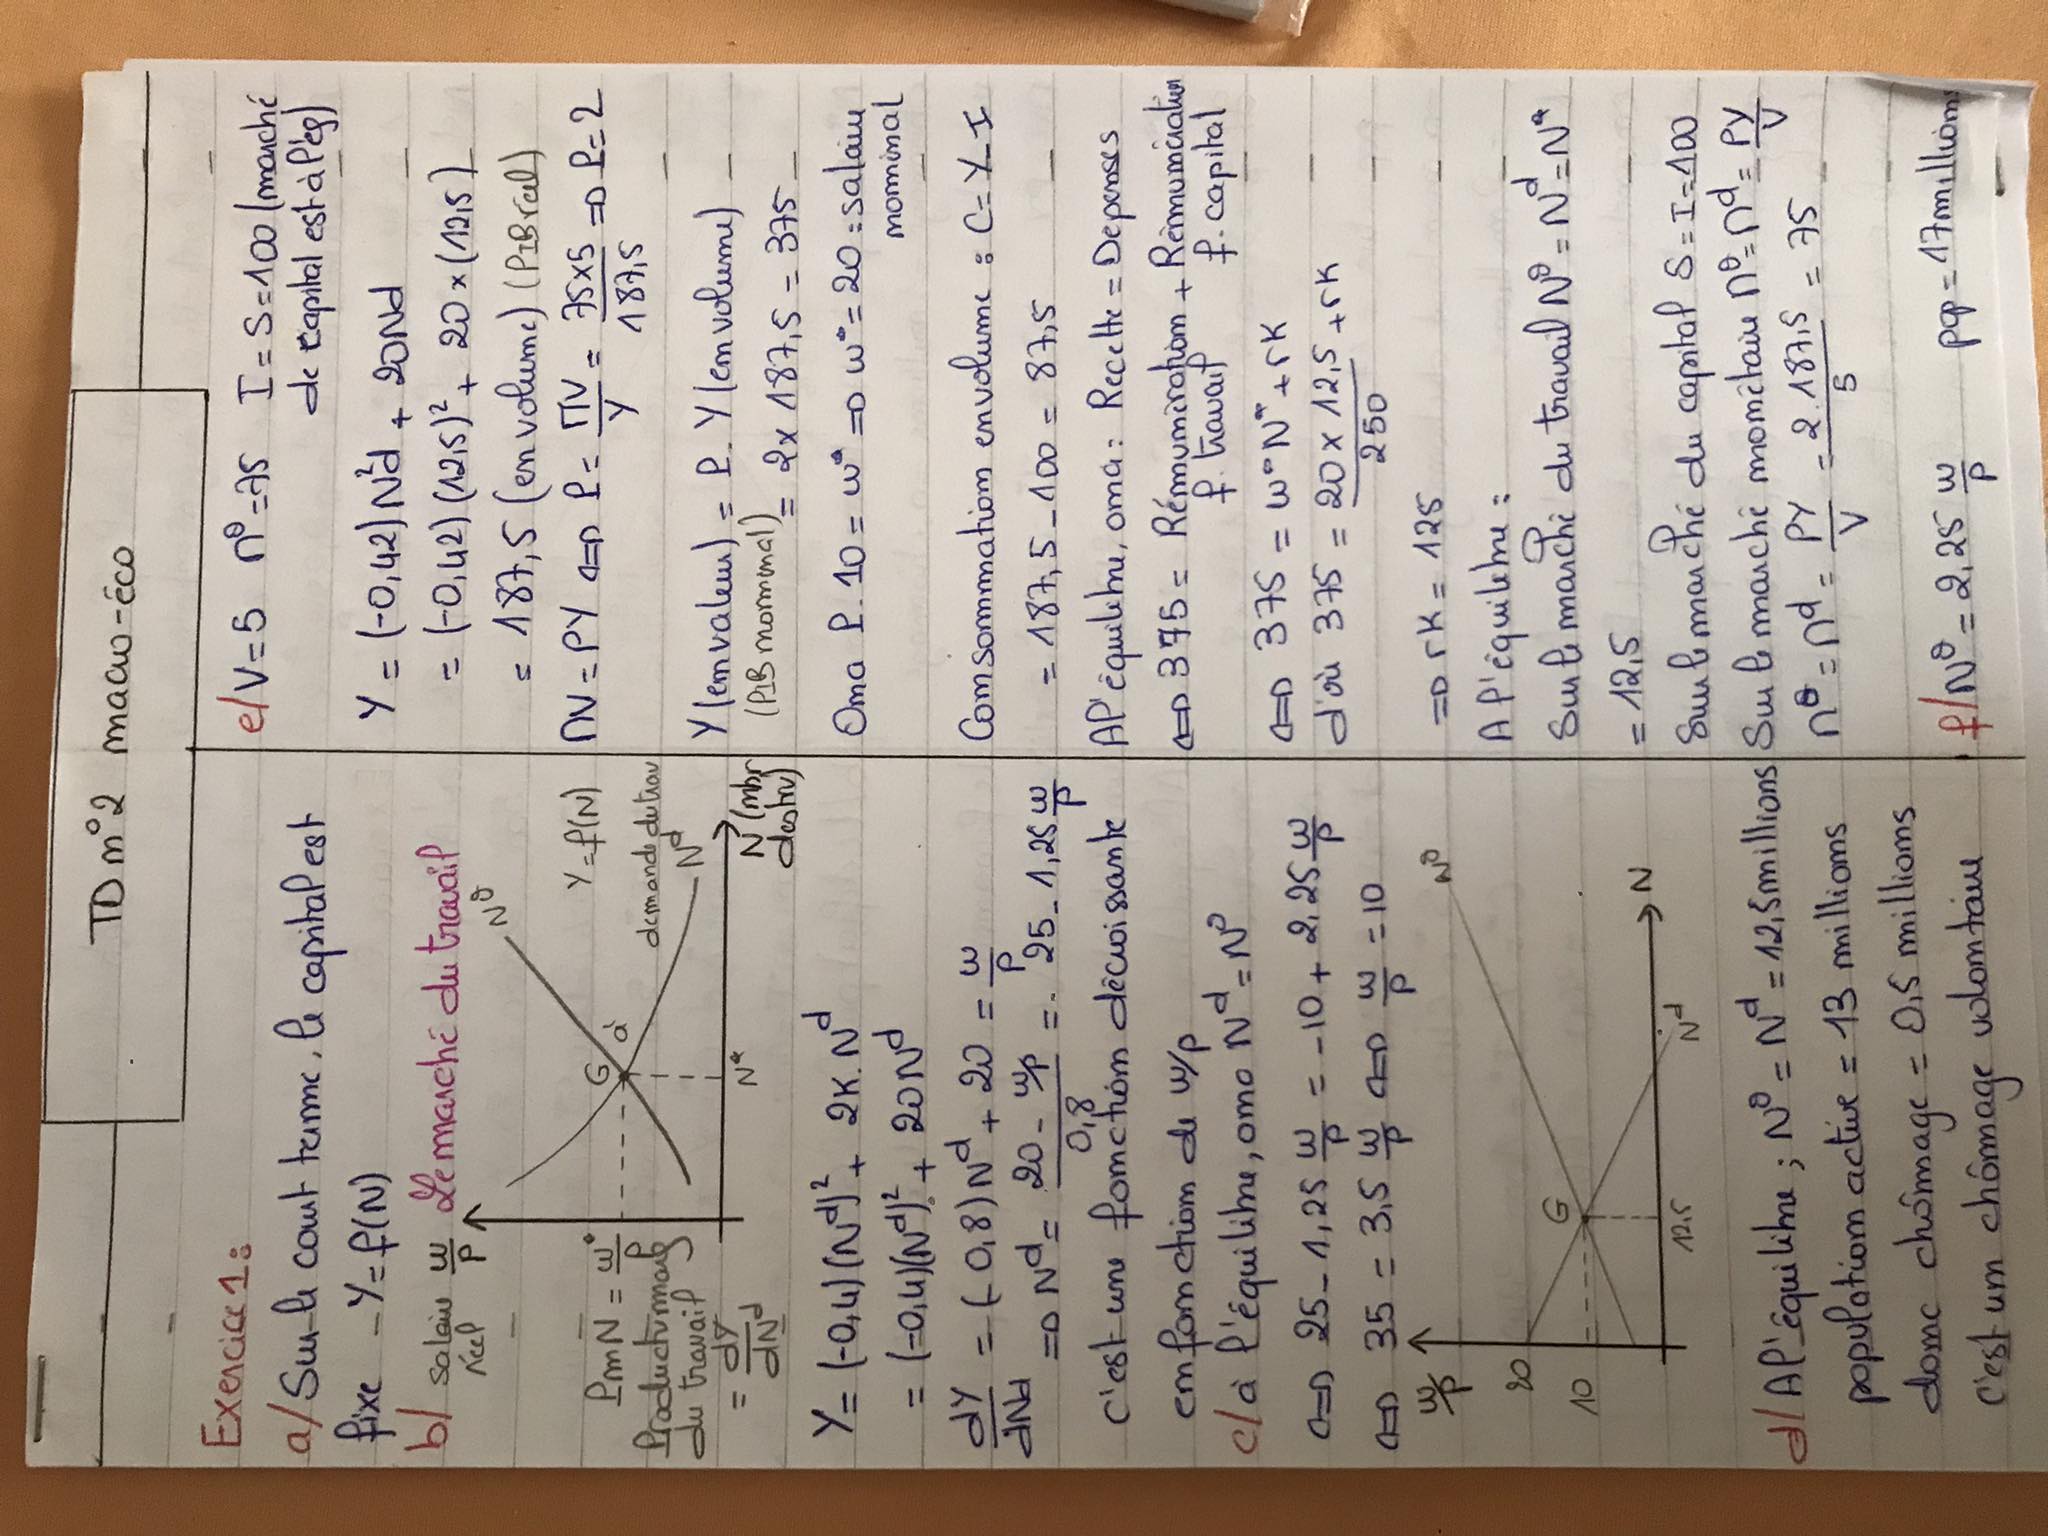 TD n°2 macro-éco
Exercice 1:
a/ Sur le court terme, le capital est
fixe - Y = f(N)
b/ salaire réel w/P Le marché du travail
N^o
Y = f(N)
G
PmN = w°/P
demande du trav
Product marg
du travail
N^d
= dY/dN^d
N*
N (nbr
d'actu)
Y = (-0,4)(N^d)² + 2K.N^d
= (-0,4)(N^d)² + 20N^d
dY/dNd = (-0,8)N^d + 20 = w/P
=> N^d = (20 - w/p)/0,8 = 25 - 1,25 w/P
c'est une fonction décroissante
en fonction de w/p
c/ à l'équilibre, on a N^d = N^o
<=> 25 - 1,25 w/P = -10 + 2,25 w/P
<=> 35 = 3,5 w/P <=> w/P = 10
w/P
N^o
20
G
10
N
12,5
N^d
d/ A l'équilibre; N^o = N^d = 12,5 millions
population active = 13 millions
donc chômage = 0,5 millions
c'est un chômage volontaire
e/ V = 5 M^o = 75 I = S = 100 (marché
de capital est à l'éq)
Y = (-0,42)N²d + 20Nd
= (-0,42)(12,5)² + 20 × (12,5)
= 187,5 (en volume) (PIB réel)
MV = PY <=> P = MV/Y = 75×5/187,5 => P = 2
Y (en valeur) = P. Y (en volume)
(PIB nominal) = 2 × 187,5 = 375
On a P. 10 = w* => w° = 20 = salaire
nominal
Consommation en volume : C = Y - I
= 187,5 - 100 = 87,5
A l'équilibre, on a : Recette = Dépenses
<=> 375 = Rémunération + Rémunération
f. travail f. capital
<=> 375 = w°N* + rK
d'où 375 = 20 × 12,5 + rK
250
=> rK = 125
A l'équilibre :
Sur le marché du travail N^o = N^d = N*
= 12,5
Sur le marché du capital S = I = 100
Sur le marché monétaire M^o = M^d = PY/V
M^o = M^d = PY/V = 2.187,5/5 = 75
f/ N^o = 2,25 w/P pop = 17 millions